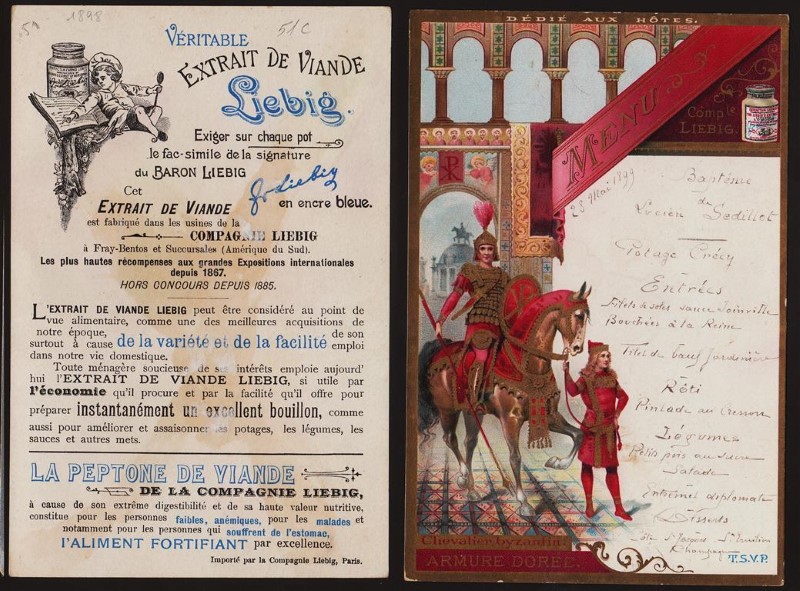 1898
51C
VÉRITABLE
EXTRAIT DE VIANDE
Liebig.
Exiger sur chaque pot
le fac-simile de la signature
du BARON LIEBIG
JvLiebig
en encre bleue.
Cet
EXTRAIT DE VIANDE
est fabriqué dans les usines de la
COMPAGNIE LIEBIG
à Fray-Bentos et Succursales (Amérique du Sud).
Les plus hautes récompenses aux grandes Expositions internationales
depuis 1867.
HORS CONCOURS DEPUIS 1885.
L'EXTRAIT DE VIANDE LIEBIG peut être considéré au point de
vue alimentaire, comme une des meilleures acquisitions de
notre époque, de son
surtout à cause de la variété et de la facilité emploi
dans notre vie domestique.
Toute ménagère soucieuse de ses intérêts emploie aujourd'
hui l'EXTRAIT DE VIANDE LIEBIG, si utile par
l'économie qu'il procure et par la facilité qu'il offre pour
préparer instantanément un excellent bouillon, comme
aussi pour améliorer et assaisonner les potages, les légumes, les
sauces et autres mets.
LA PEPTONE DE VIANDE
DE LA COMPAGNIE LIEBIG,
à cause de son extrême digestibilité et de sa haute valeur nutritive,
constitue pour les personnes faibles, anémiques, pour les malades et
notamment pour les personnes qui souffrent de l'estomac,
l'ALIMENT FORTIFIANT par excellence.
Importé par la Compagnie Liebig, Paris.
DÉDIÉ AUX HÔTES.
MENU
Compie
LIEBIG.
28 Mai 1899
Baptême
de
Lucien Sedillot
Potage Crécy
Entrées
Filets de soles sauce Joinville
Bouchées à la Reine
Filet de bœuf Jardinière
Rôti
Pintade au Cresson
Légumes
Petits pois au sucre
Salade
Entremets diplomate
Desserts
Champagne
Chevalier byzantin
ARMURE DORÉE.
T.S.V.P.